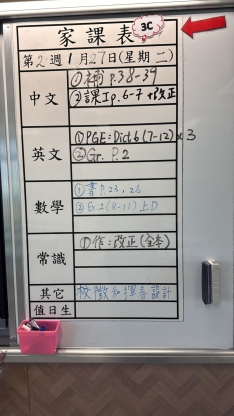 家課表 3C
第2週1月27日(星期二)
中文
①補 p.38-39
②課工p.6-7 +改正
英文
①PGE=Dict.6(7-12)×3
②Gr. P.2
數學
①書 P.23, 26
②Ex.2(8-11)上D
常識
①作:改正(全本)
其它
校徽和擇善設計
值日生